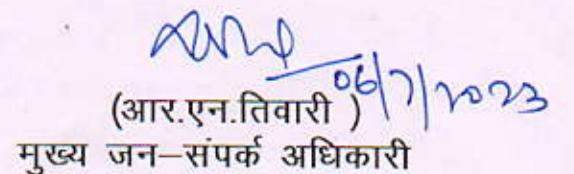 06/7/2023
(आर.एन.तिवारी )
मुख्य जन–संपर्क अधिकारी